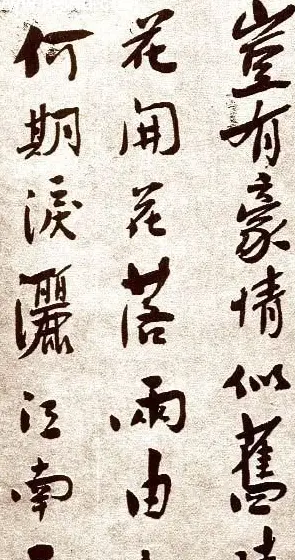 豈有豪情似舊
花開花落兩由
何期淚灑江南